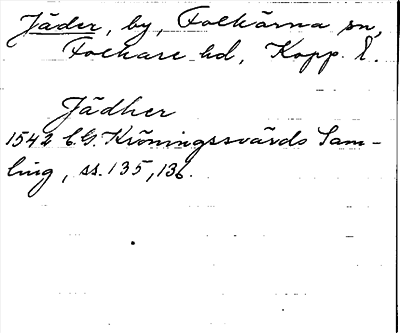 Jäder, by, Folkärna sn,
Folkare hd, Kopp. l.
Jädher
1542 C.G. Kröningssvärds Sam-
ling, ss. 135, 136.